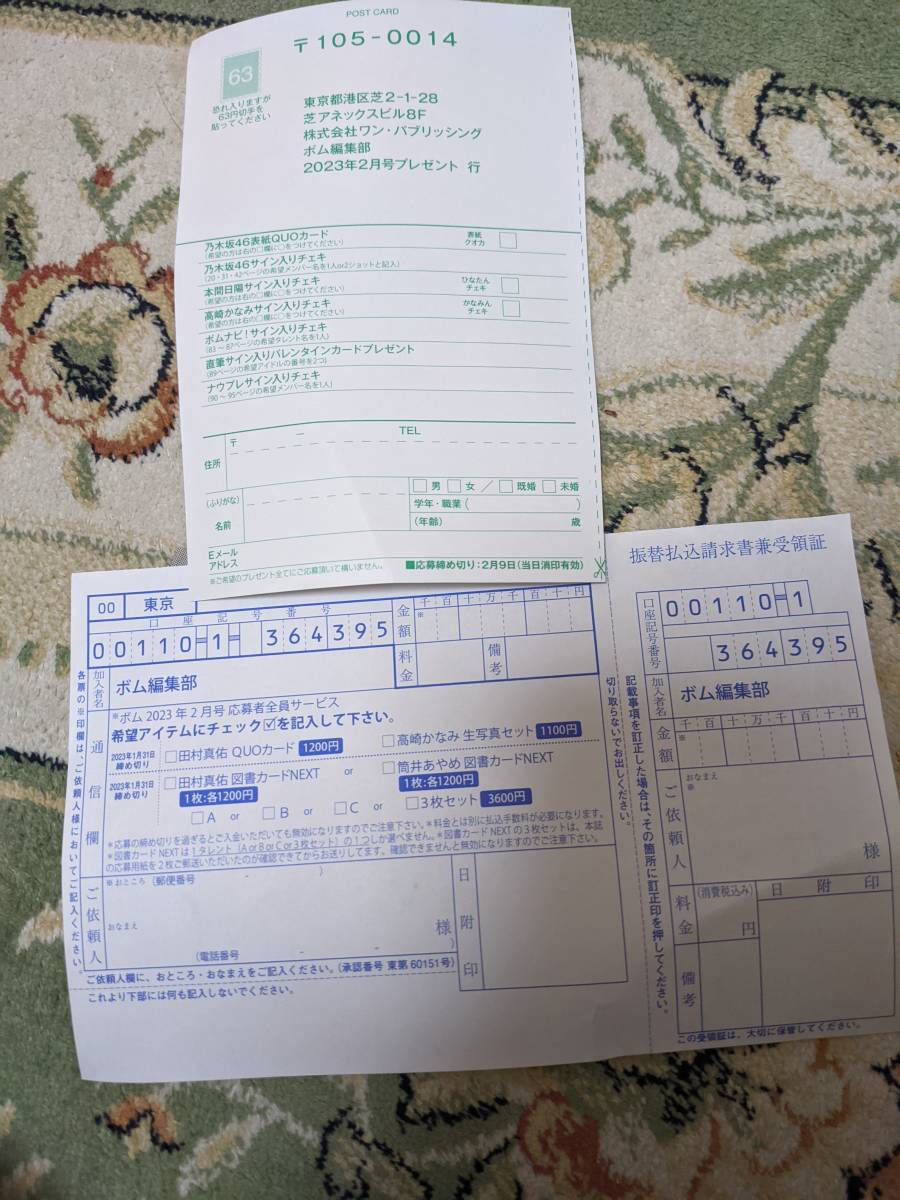 POST CARD
〒105-0014
63
恐れ入りますが
63円切手を
貼ってください
東京都港区芝2-1-28
芝アネックスビル8F
株式会社ワン・パブリッシング
ボム編集部
2023年2月号プレゼント 行
乃木坂46表紙QUOカード
(希望の方は右の□欄に○をつけてください)
表紙
クオカ
乃木坂46サイン入りチェキ
(20・31・42ページの希望メンバー名を1人or2ショットと記入)
本間日陽サイン入りチェキ
(希望の方は右の□欄に○をつけてください)
ひなたん
チェキ
高崎かなみサイン入りチェキ
(希望の方は右の□欄に○をつけてください)
かなみん
チェキ
ボムナビ!サイン入りチェキ
(83～87ページの希望タレント名を1人)
直筆サイン入りバレンタインカードプレゼント
(89ページの希望アイドルの番号を2つ)
ナウプレサイン入りチェキ
(90～95ページの希望メンバー名を1人)
〒 － TEL
住所
(ふりがな)
名前
□男 □女 ／ □既婚 □未婚
学年・職業( )
(年齢) 歳
Eメール
アドレス
※ご希望のプレゼント全てにご応募頂いて構いません。
■応募締め切り:2月9日(当日消印有効)
00 東京
口座記号番号
00110-1- 364395
金額
千百十万千百十円
※
料金
備考
加入者名
ボム編集部
各票の※印欄は、ご依頼人様においてご記入ください。
通信欄
※ボム 2023年2月号 応募者全員サービス
希望アイテムにチェック☑を記入して下さい。
2023年1月31日
締め切り
□田村真佑 QUOカード 1200円
□高崎かなみ 生写真セット 1100円
2023年1月31日
締め切り
□田村真佑 図書カードNEXT or □筒井あやめ 図書カードNEXT
1枚:各1200円
1枚:各1200円
□A or □B or □C or □3枚セット 3600円
※応募の締め切りを過ぎるとご入金いただいても無効になりますのでご注意下さい。※料金とは別に払込手数料が必要になります。
※図書カードNEXTは1タレント(A or B or C or 3枚セット)の1つしか選べません。※図書カードNEXTの3枚セットは、本誌
の応募用紙を2枚ご郵送いただいたのが確認できてからお送りしてます。確認できませんと無効になりますのでご注意下さい。
ご依頼人
※おところ(郵便番号 )
おなまえ
様
(電話番号 - - )
日附印
ご依頼人欄に、おところ・おなまえをご記入ください。(承認番号 東第60151号)
これより下部には何も記入しないでください。
切り取らないでお出しください。
記載事項を訂正した場合は、その箇所に訂正印を押してください。
振替払込請求書兼受領証
口座記号番号
00110-1
364395
加入者名
ボム編集部
金額
千百十万千百十円
※
ご依頼人
おなまえ
※
様
料金
(消費税込み)
円
日附印
備考
この受領証は、大切に保管してください。